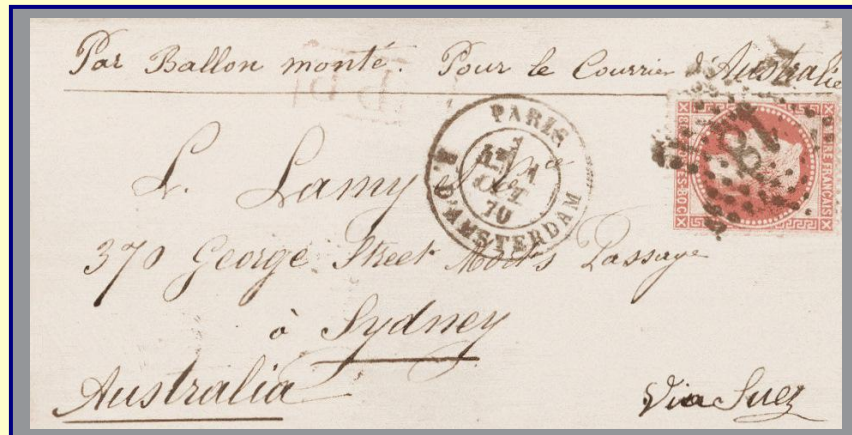 Par Ballon monté. Pour le Courrier d'Australie
PD
PARIS
R. D'AMSTERDAM
OCT.
70
18
EMPIRE FRANÇAIS
L. Lamy
370 George Street Mort's Passage
à Sydney
Australia
Via Suez